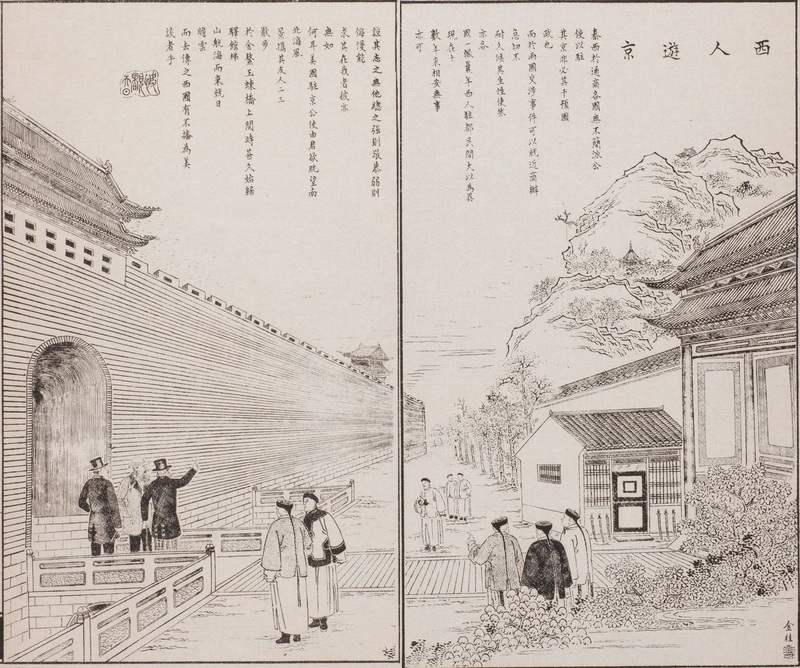 西人遊京
泰西於通商各國無不簡派公
使以駐
其京非必其干預國
政也
而於兩國交涉事件可以就近商辦
急切不
耐久候其生性使然
亦各
國一轍曩年西人駐都民間大以為異
現在十
數年來相安無事
亦可
誼其志之無他總之強則敬恭弱則
侮慢能
求其在我者彼亦
無如
何年美國駐京公使由君欲眺望南
北海風
景攜其友人二三
散步
於金鰲玉蝀橋上閱時甚久始歸
驛館梯
山航海而來就日
瞻雲
而去傳之西國有不播為美
談者乎
金桂